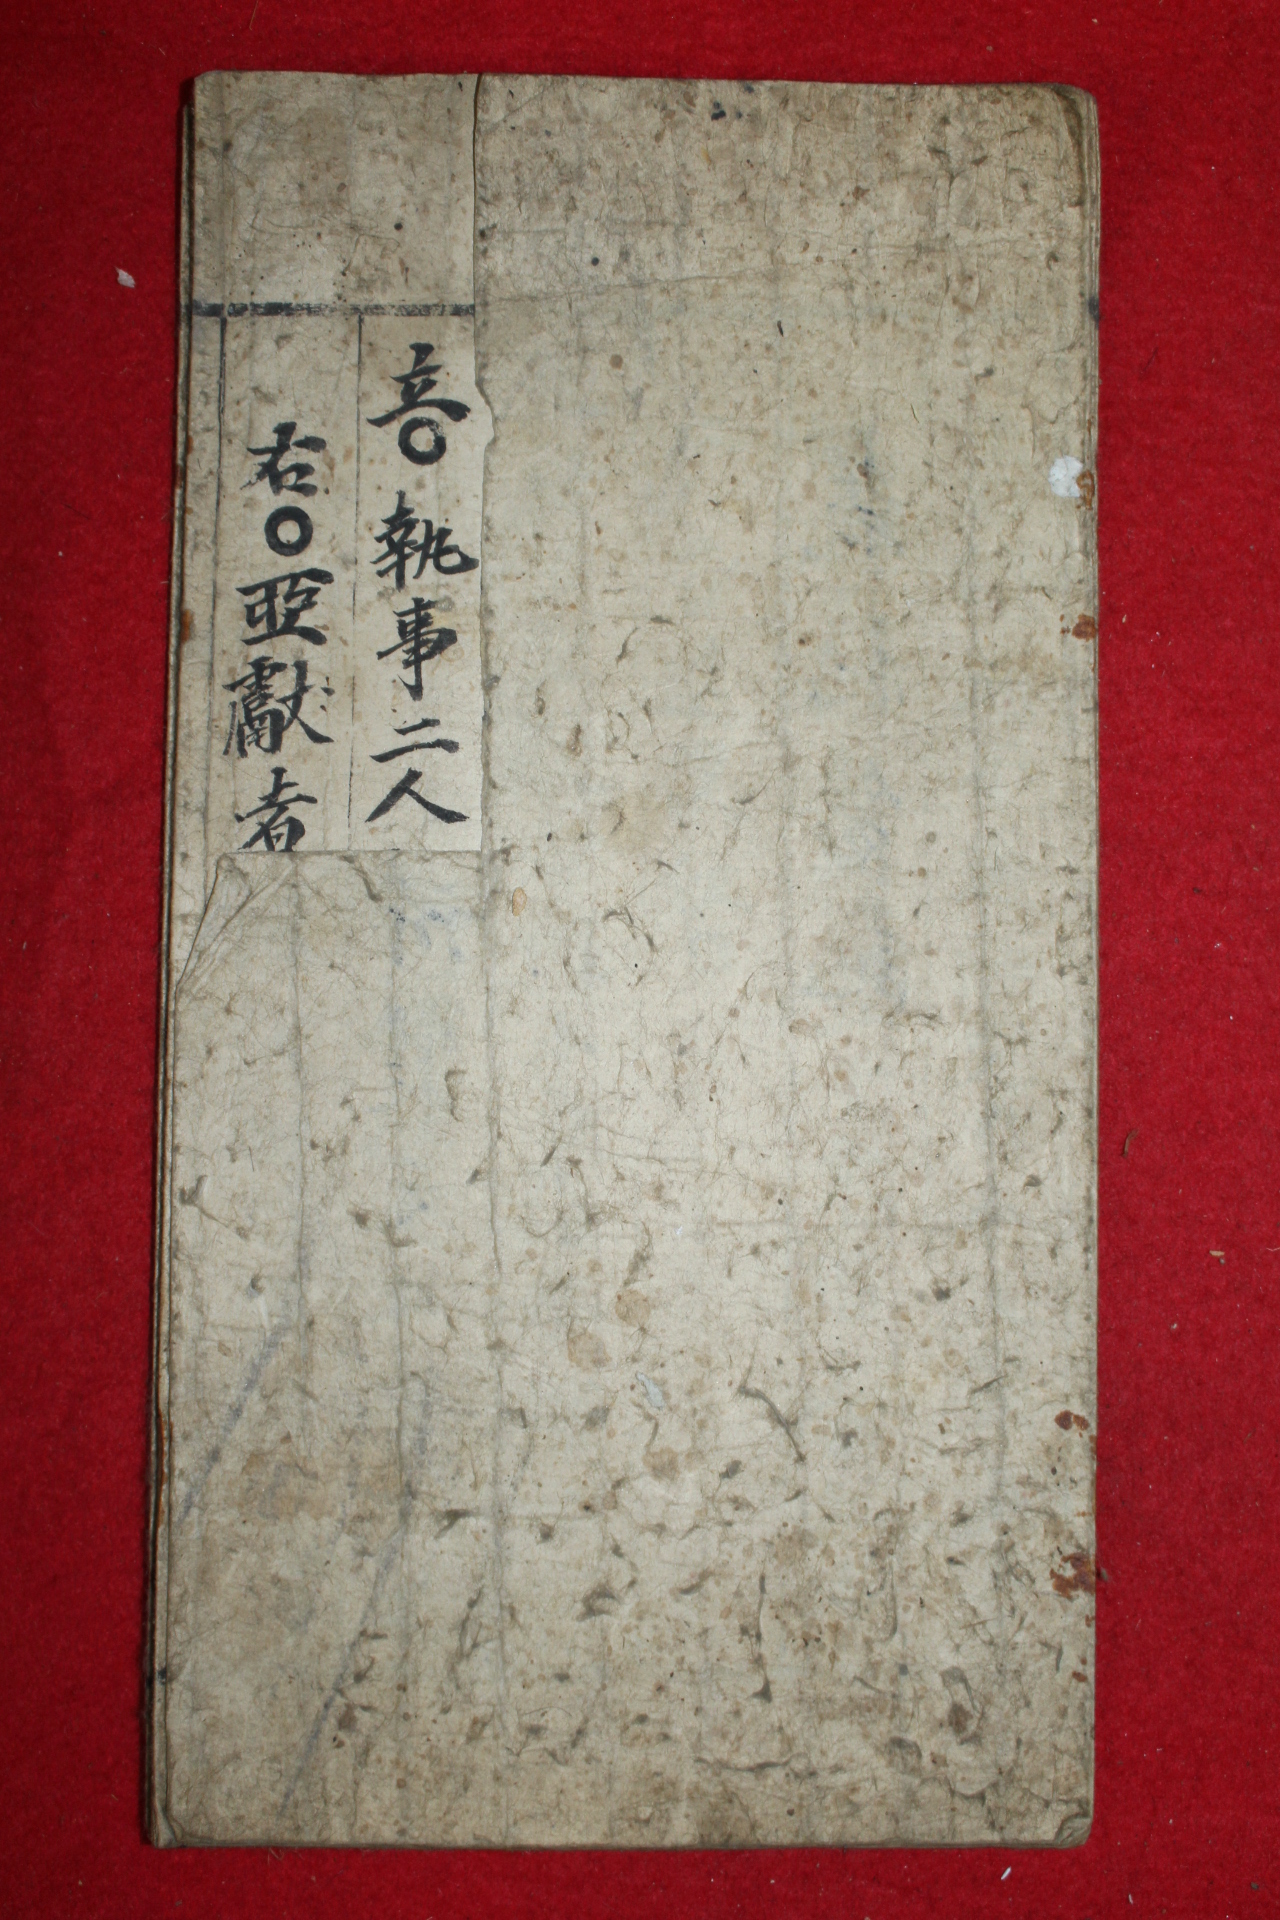 立○執事二人
右○亞獻者